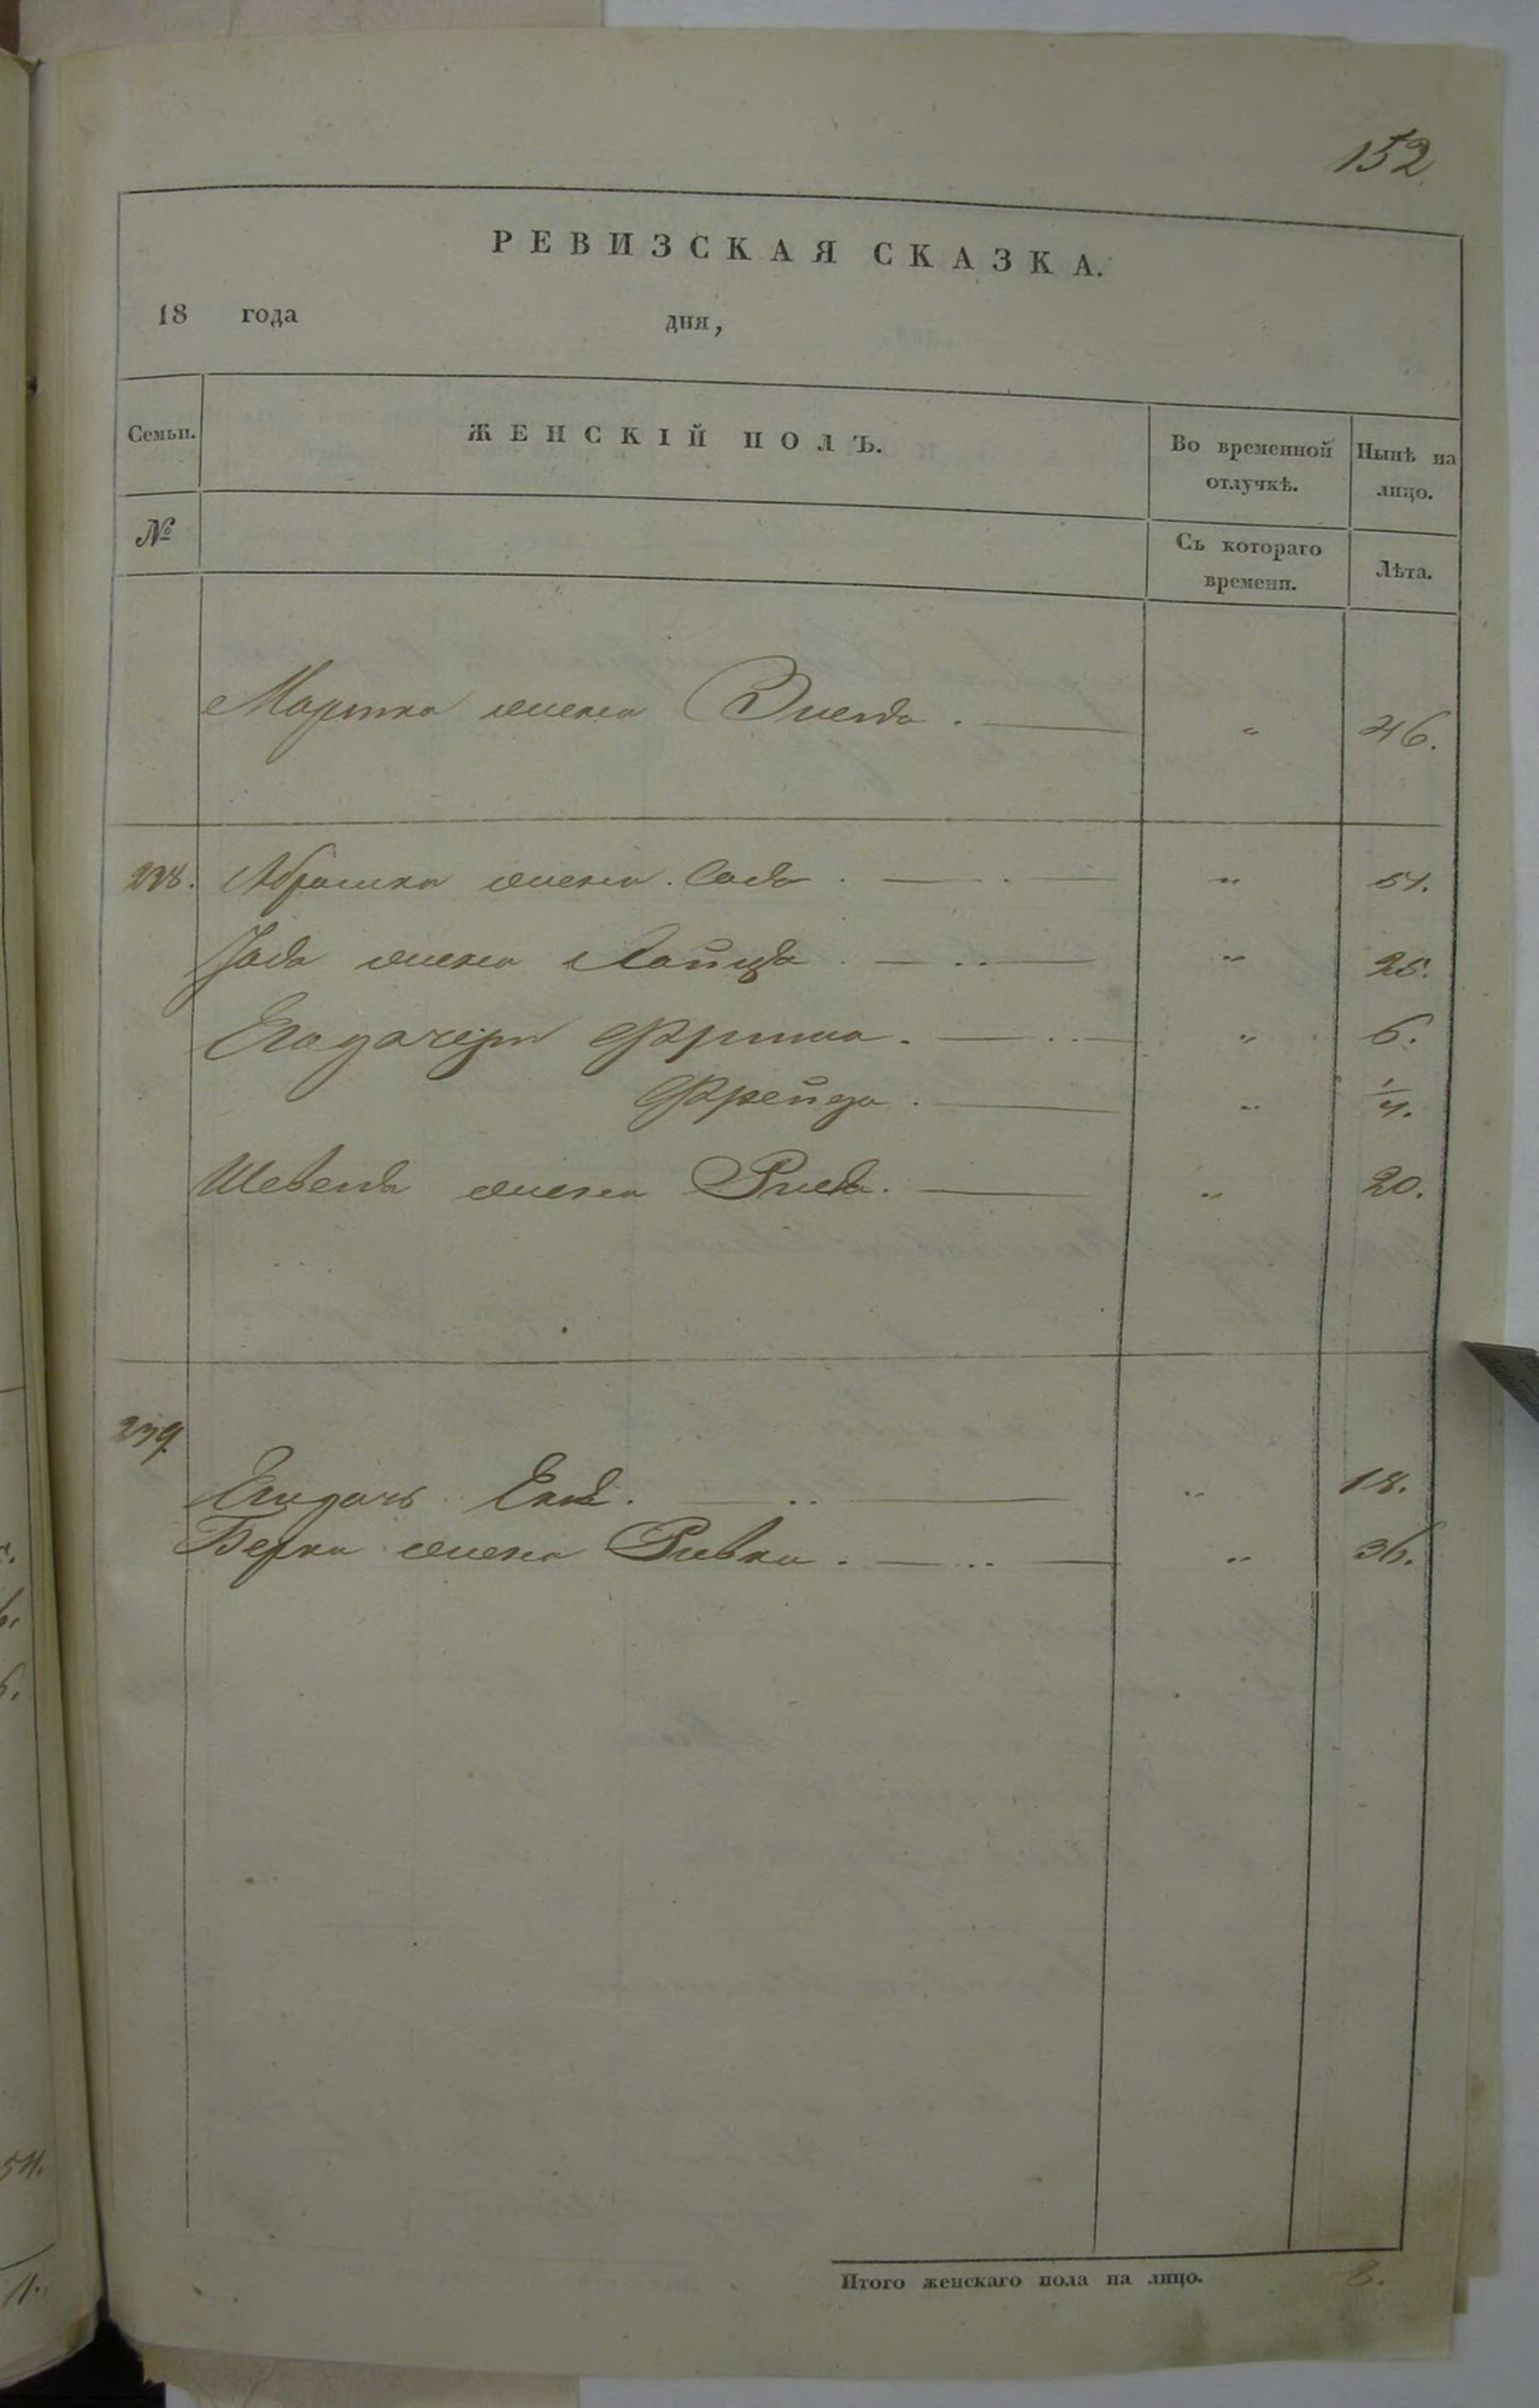 152
РЕВИЗСКАЯ СКАЗКА.
18 года дня,
Семьи. ЖЕНСКІЙ ПОЛЪ. Во временной отлучкѣ. Нынѣ на лицо.
№ Съ котораго времени. Лѣта.
жена " 46.
238. Абрамка жена " 54.
жена " 25.
Его дочери " 6.
Фрейда. " 1/4.
жена " 20.
239.
Его дочь " 18.
Берка жена Ривка. " 36.
Итого женскаго пола на лицо. 8.